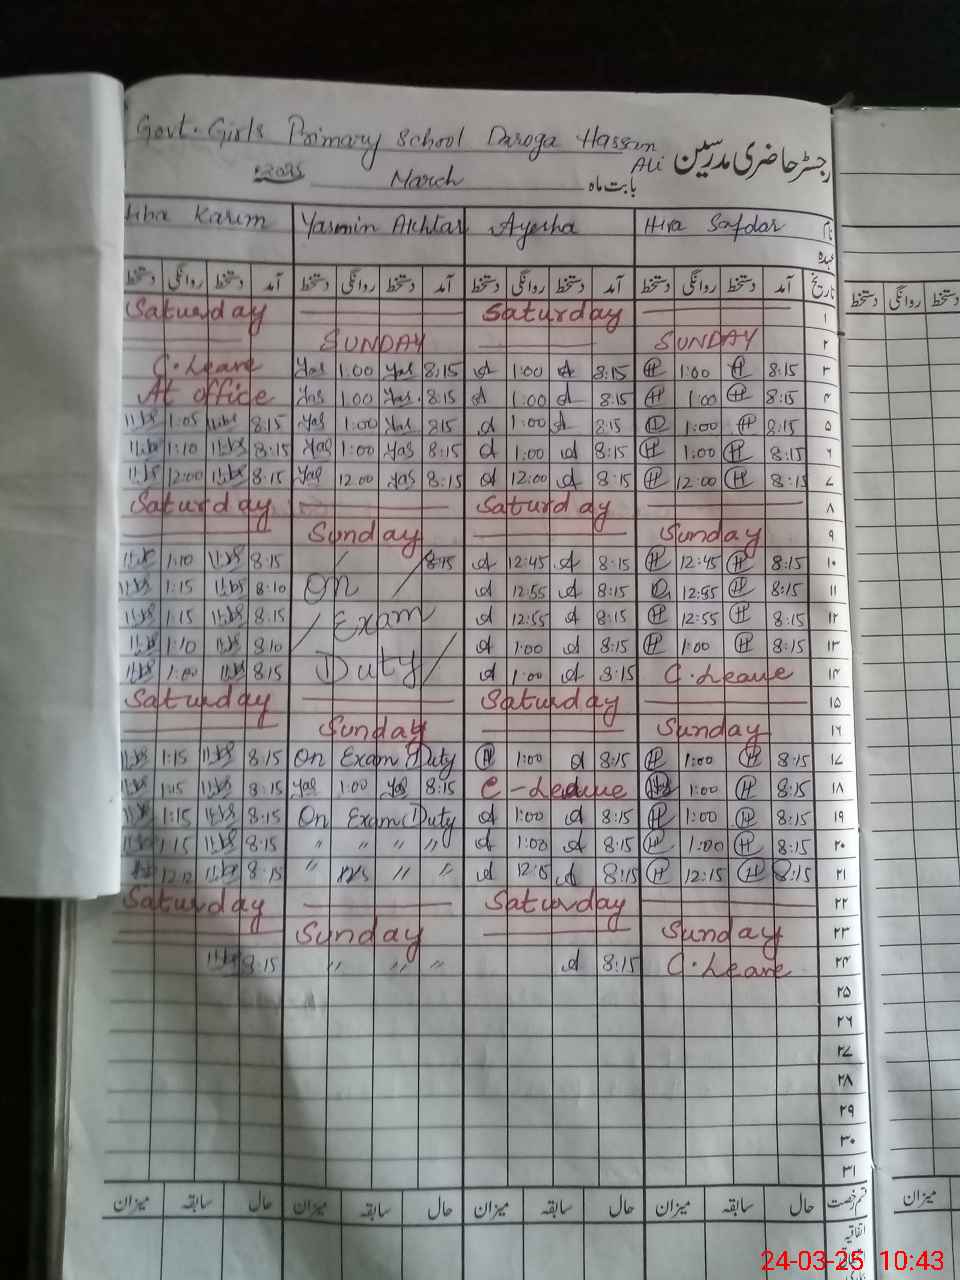 Govt. Girls Primary School Daroga Hassan Ali
رجسٹر حاضری مدرسین
بابت ماہ March 2025ء
Karim Yasmin Akhtar Ayesha Hira Safdar نام
عہدہ
دستخط روانگی دستخط آمد دستخط روانگی دستخط آمد دستخط روانگی دستخط آمد دستخط روانگی دستخط آمد تاریخ دستخط روانگی دستخط
Saturday Saturday ۱
SUNDAY SUNDAY ۲
C. Leave Yas 1:00 Yas 8:15 A 1:00 A 8:15 H 1:00 H 8:15 ۳
At office Yas 1:00 Yas. 8:15 A 1:00 A 8:15 H 1:00 H 8:15 ۴
1:05 8:15 Yas 1:00 Yas 8:15 A 1:00 A 8:15 H 1:00 H 8:15 ۵
1:10 8:15 Yas 1:00 Yas 8:15 A 1:00 A 8:15 H 1:00 H 8:15 ۶
12:00 8:15 Yas 12:00 Yas 8:15 A 12:00 A 8:15 H 12:00 H 8:15 ۷
Saturday Saturday ۸
Sunday Sunday ۹
1:10 8:15 8:15 A 12:45 A 8:15 H 12:45 H 8:15 ۱۰
1:15 8:10 On A 12:55 A 8:15 H 12:55 H 8:15 ۱۱
1:15 8:15 Exam A 12:55 A 8:15 H 12:55 H 8:15 ۱۲
1:10 8:10 A 1:00 A 8:15 H 1:00 H 8:15 ۱۳
1:00 8:15 Duty A 1:00 A 8:15 C. Leave ۱۴
Saturday Saturday ۱۵
Sunday Sunday ۱۶
1:15 8:15 On Exam Duty H 1:00 A 8:15 H 1:00 H 8:15 ۱۷
1:15 8:15 Yas 1:00 Yas 8:15 C-Leave H 1:00 H 8:15 ۱۸
1:15 8:15 On Exam Duty A 1:00 A 8:15 H 1:00 H 8:15 ۱۹
1:15 8:15 " " " " A 1:00 A 8:15 H 1:00 H 8:15 ۲۰
12:12 8:15 " " " A 12:15 A 8:15 H 12:15 H 8:15 ۲۱
Saturday Saturday ۲۲
Sunday Sunday ۲۳
8:15 " " " A 8:15 C. Leave ۲۴
۲۵
۲۶
۲۷
۲۸
۲۹
۳۰
۳۱
میزان سابقہ حال میزان سابقہ حال میزان سابقہ حال میزان سابقہ حال قسم رخصت میزان
اتفاقیہ
24-03-25 10:43